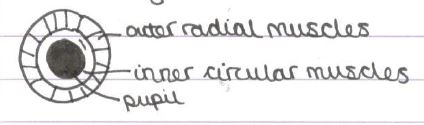 outer radial muscles
inner circular muscles
pupil